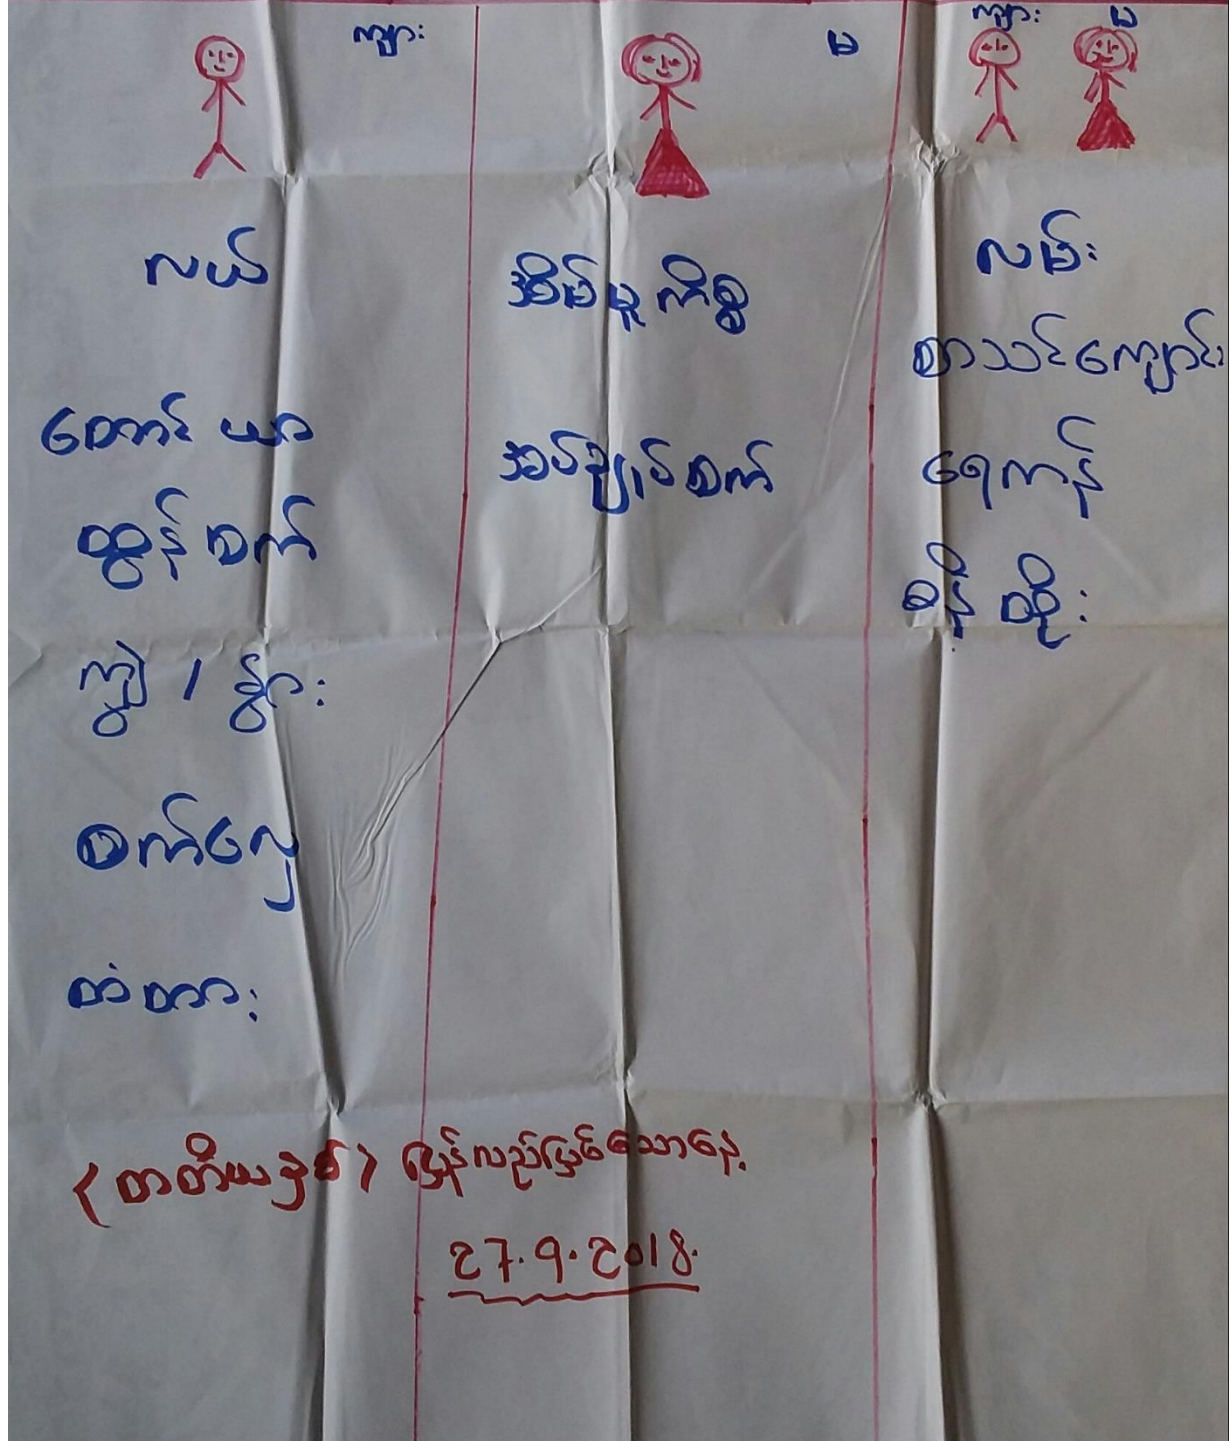 ကျား
မ
ကျား မ
လယ်
တောင် ယာ
ထွန် စက်
ကျွဲ / နွား
စက်လှေ
တံတား
အိမ်မှုကိစ္စ
အပ်ချုပ်စက်
လမ်း
စာသင်ကျောင်း
ရေကန်
စိန့် ထိုး
(တတိယနှစ်) ပြန်လည်ပြင်သောနေ့
27.9.2018.